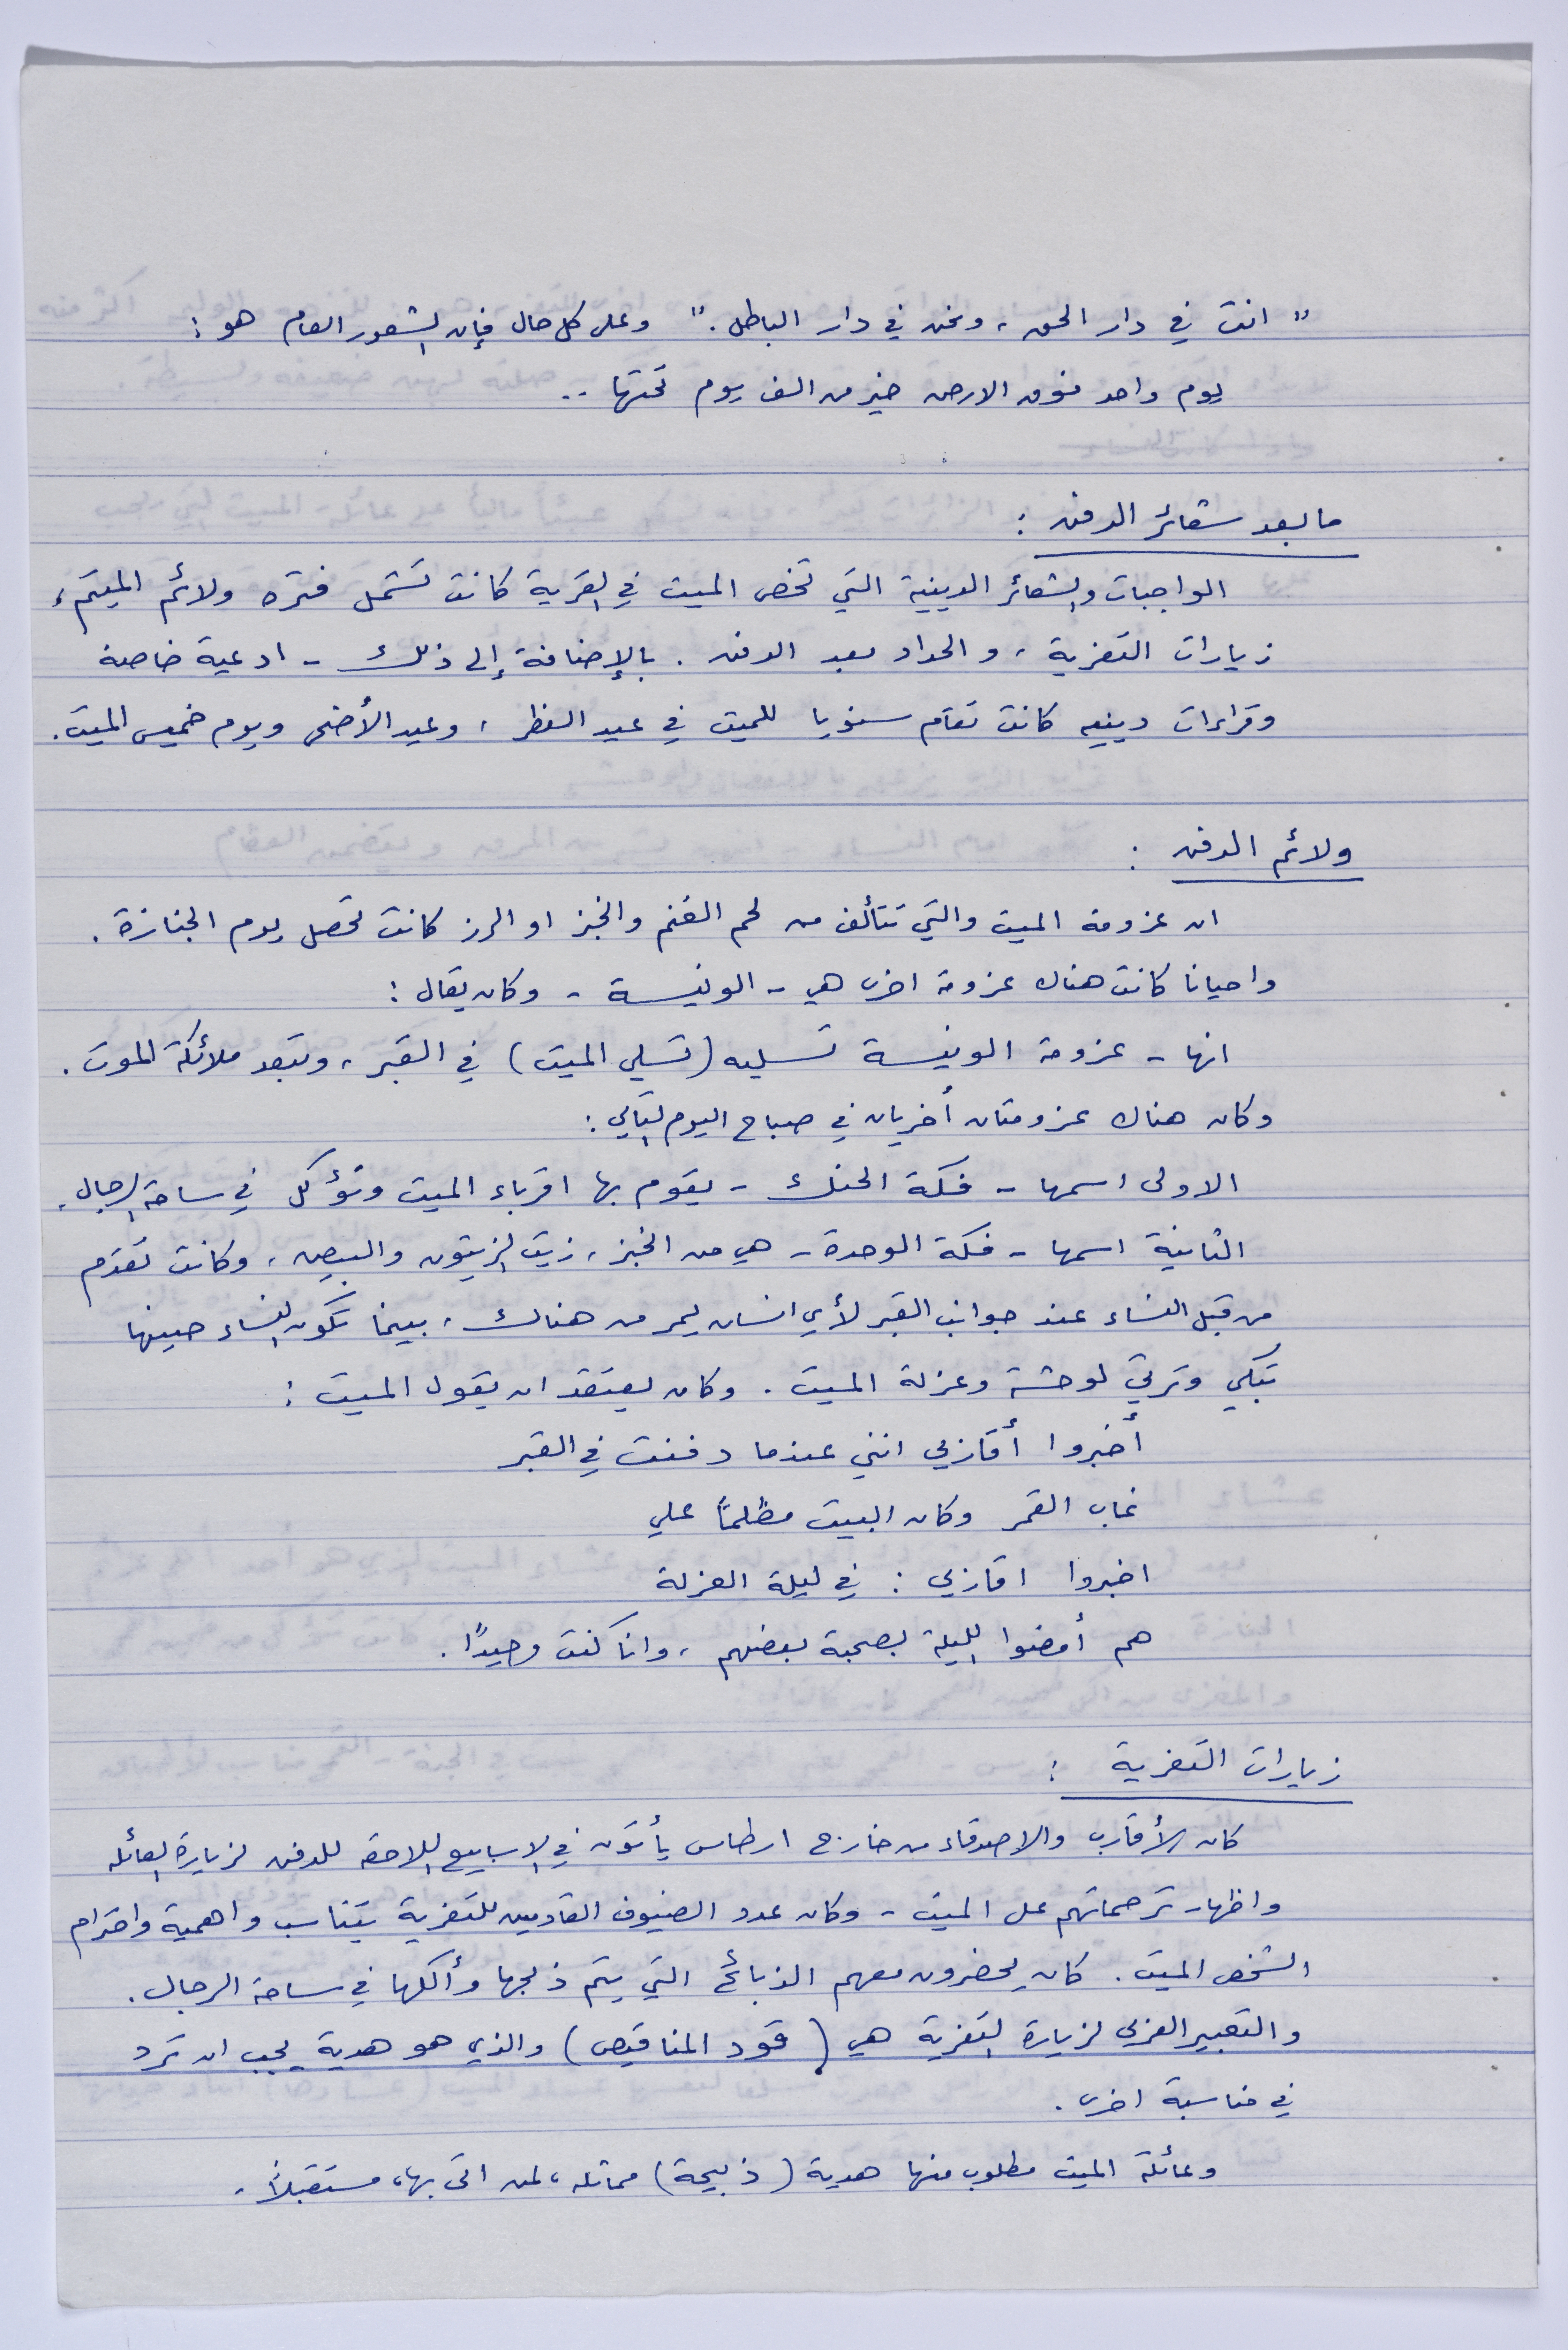 " انت في دار الحق ، ونحن في دار الباطل . " وعلى كل حال فإن الشعور العام هو :
يوم واحد فوق الارض خير من الف يوم تحتها ..
ما بعد شعائر الدفن :
الواجبات والشعائر الدينية التي تخص الميت في القرية كانت تشمل فتره ولائم الميتم ،
زيارات التعزية ، والحداد بعد الدفن . بالإضافة إلى ذلك - ادعية خاصة
وقراءات دينيه كانت تقام سنويا للميت في عيد الفطر ، وعيد الأضحى ويوم خميس الميت .
ولائم الدفن :
ان عزومة الميت والتي تتألف من لحم الغنم والخبز او الرز كانت تحصل يوم الجنازة .
واحيانا كانت هناك عزومة اخرى هي - الونيسة - وكان يقال :
انها - عزومة الونيسة تسليه ( تسلي الميت ) في القبر ، وتبعد ملائكة الموت .
وكان هناك عزومتان أخريان في صباح اليوم التالي :
الاولى اسمها - فكة الحنك - يقوم بها اقرباء الميت وتؤكل في ساحة الرجال .
الثانية اسمها - فكة الوحدة - هي من الخبز ، زيت الزيتون والبيض ، وكانت تقدم
من قبل النساء عند جوانب القبر لأي انسان يمر من هناك ، بينما تكون النساء حينها
تبكي وترثي لوحشة وعزلة الميت . وكان يعتقد ان يقول الميت :
أخبروا أقاربي انني عندما دفنت في القبر
غاب القمر وكان البيت مظلماً علي
اخبروا اقاربي : في ليلة العزلة
هم أمضوا الليلة بصحبة بعضهم ، وانا كنت وحيدًا .
زيارات التعزية :
كان الأقارب والاصدقاء من خارج ارطاس يأتون في الاسابيع اللاحقه للدفن لزيارة العائله
واظهار ترحماتهم على الميت - وكان عدد الضيوف القادمين للتعزية يتناسب واهمية واحترام
الشخص الميت . كان يحضرون معهم الذبائح التي يتم ذبحها وأكلها في ساحة الرجال .
والتعبير العربي لزيارة التعزية هي ( قود المناقيص ) والذي هو هدية يجب ان ترد
في مناسبة اخرى .
وعائلة الميت مطلوب منها هدية ( ذبيحة ) مماثله ، لمن اتى بها ، مستقبلاً .